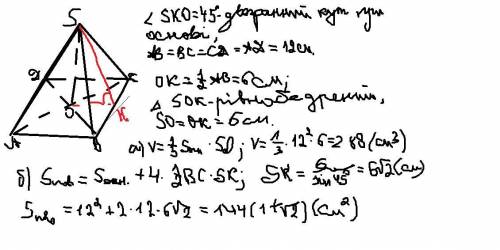 S
∠ SKO=45°-двогранний кут при
основі,
AB=BC=CD=AD=12см.
OK=½AB=6см;
△ SOK-рівнобедрений,
SO=OK=6см.
а) V=⅓Sосн·SO; V=⅓·12²·6=288(см³)
б) Sпов=Sосн.+4·½BC·SK; SK=6/sin45°=6√2(см)
Sпов=12²+2·12·6√2=144(1+√2)(см²)
D
C
O
K
A
B